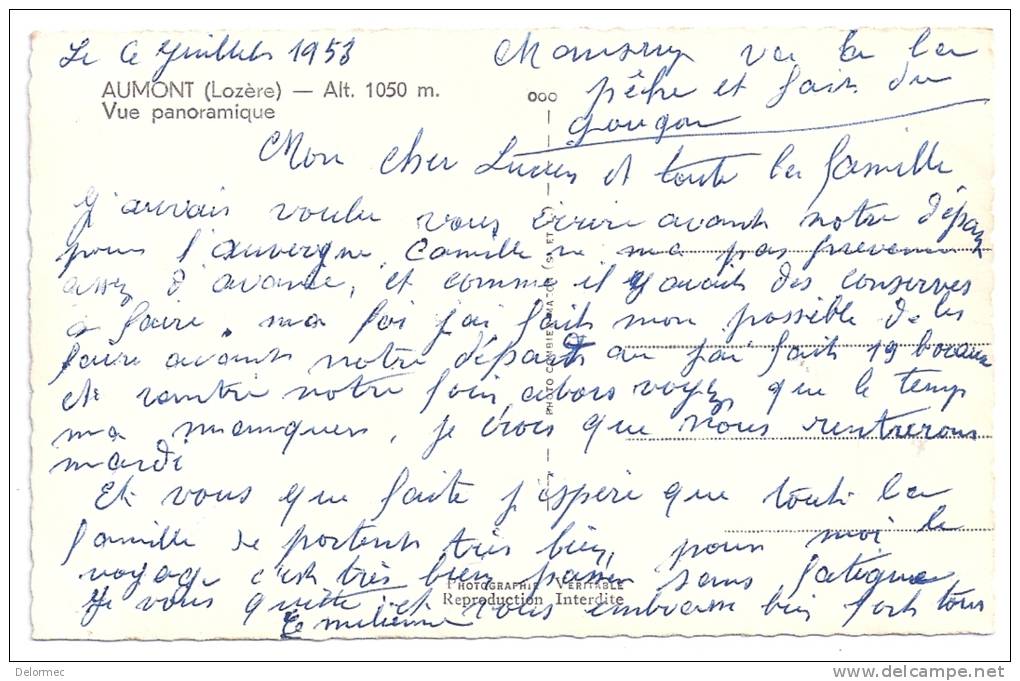 Le 6 Juillets 1953
AUMONT (Lozère) — Alt. 1050 m.
Vue panoramique
va a la
pêche et fait du
gougon
Mon cher Lucien et toute la famille
J'auvais voulu vous écrire avants notre dépar
pour l'auvergne, Camille ne ma pas prevenu
assez d'avance, et comme il y avait des conserves
a faire, ma foi j'ai faits mon possible de les
faire avants notre départs j'ai faits 19 bocaux
et rentré notre foin, alors voyez que le temp
ma manquer, je crois que nous rentrerons
mardi
Et vous que faite j'espère que toute la
famille se portents très bien, pour moi le
voyage c'est très bien passer sans fatigue
PHOTOGRAPHIE VÉRITABLE
Je vous quitte et vous embrasse bien fort tous
Reproduction Interdite
Emilienne
PHOTO COMBIER MACON (S. ET L.)
Delormec
www.delcampe.net